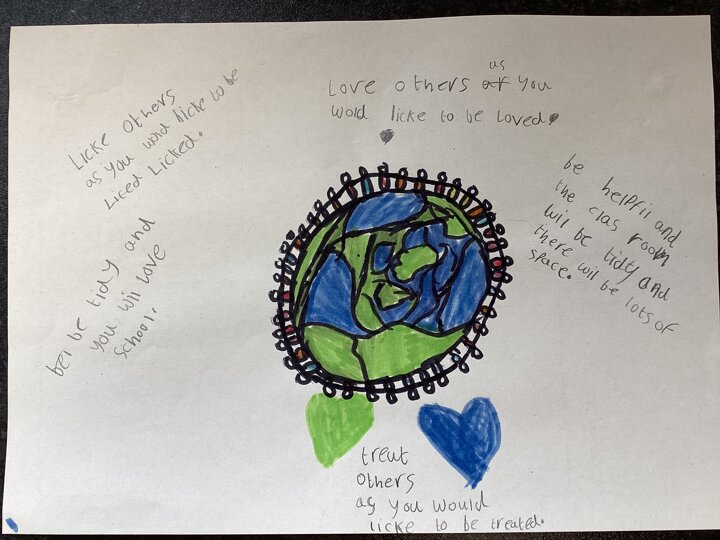 Love others as you
wold licke to be loved.
Licke others
as you wold licke to be
Liced Licked.
be helpfii and
the clas room
wil be tidy and
there wil be lots of
space.
be tidy and
you wii love
school.
treat
others
as you would
licke to be treated.